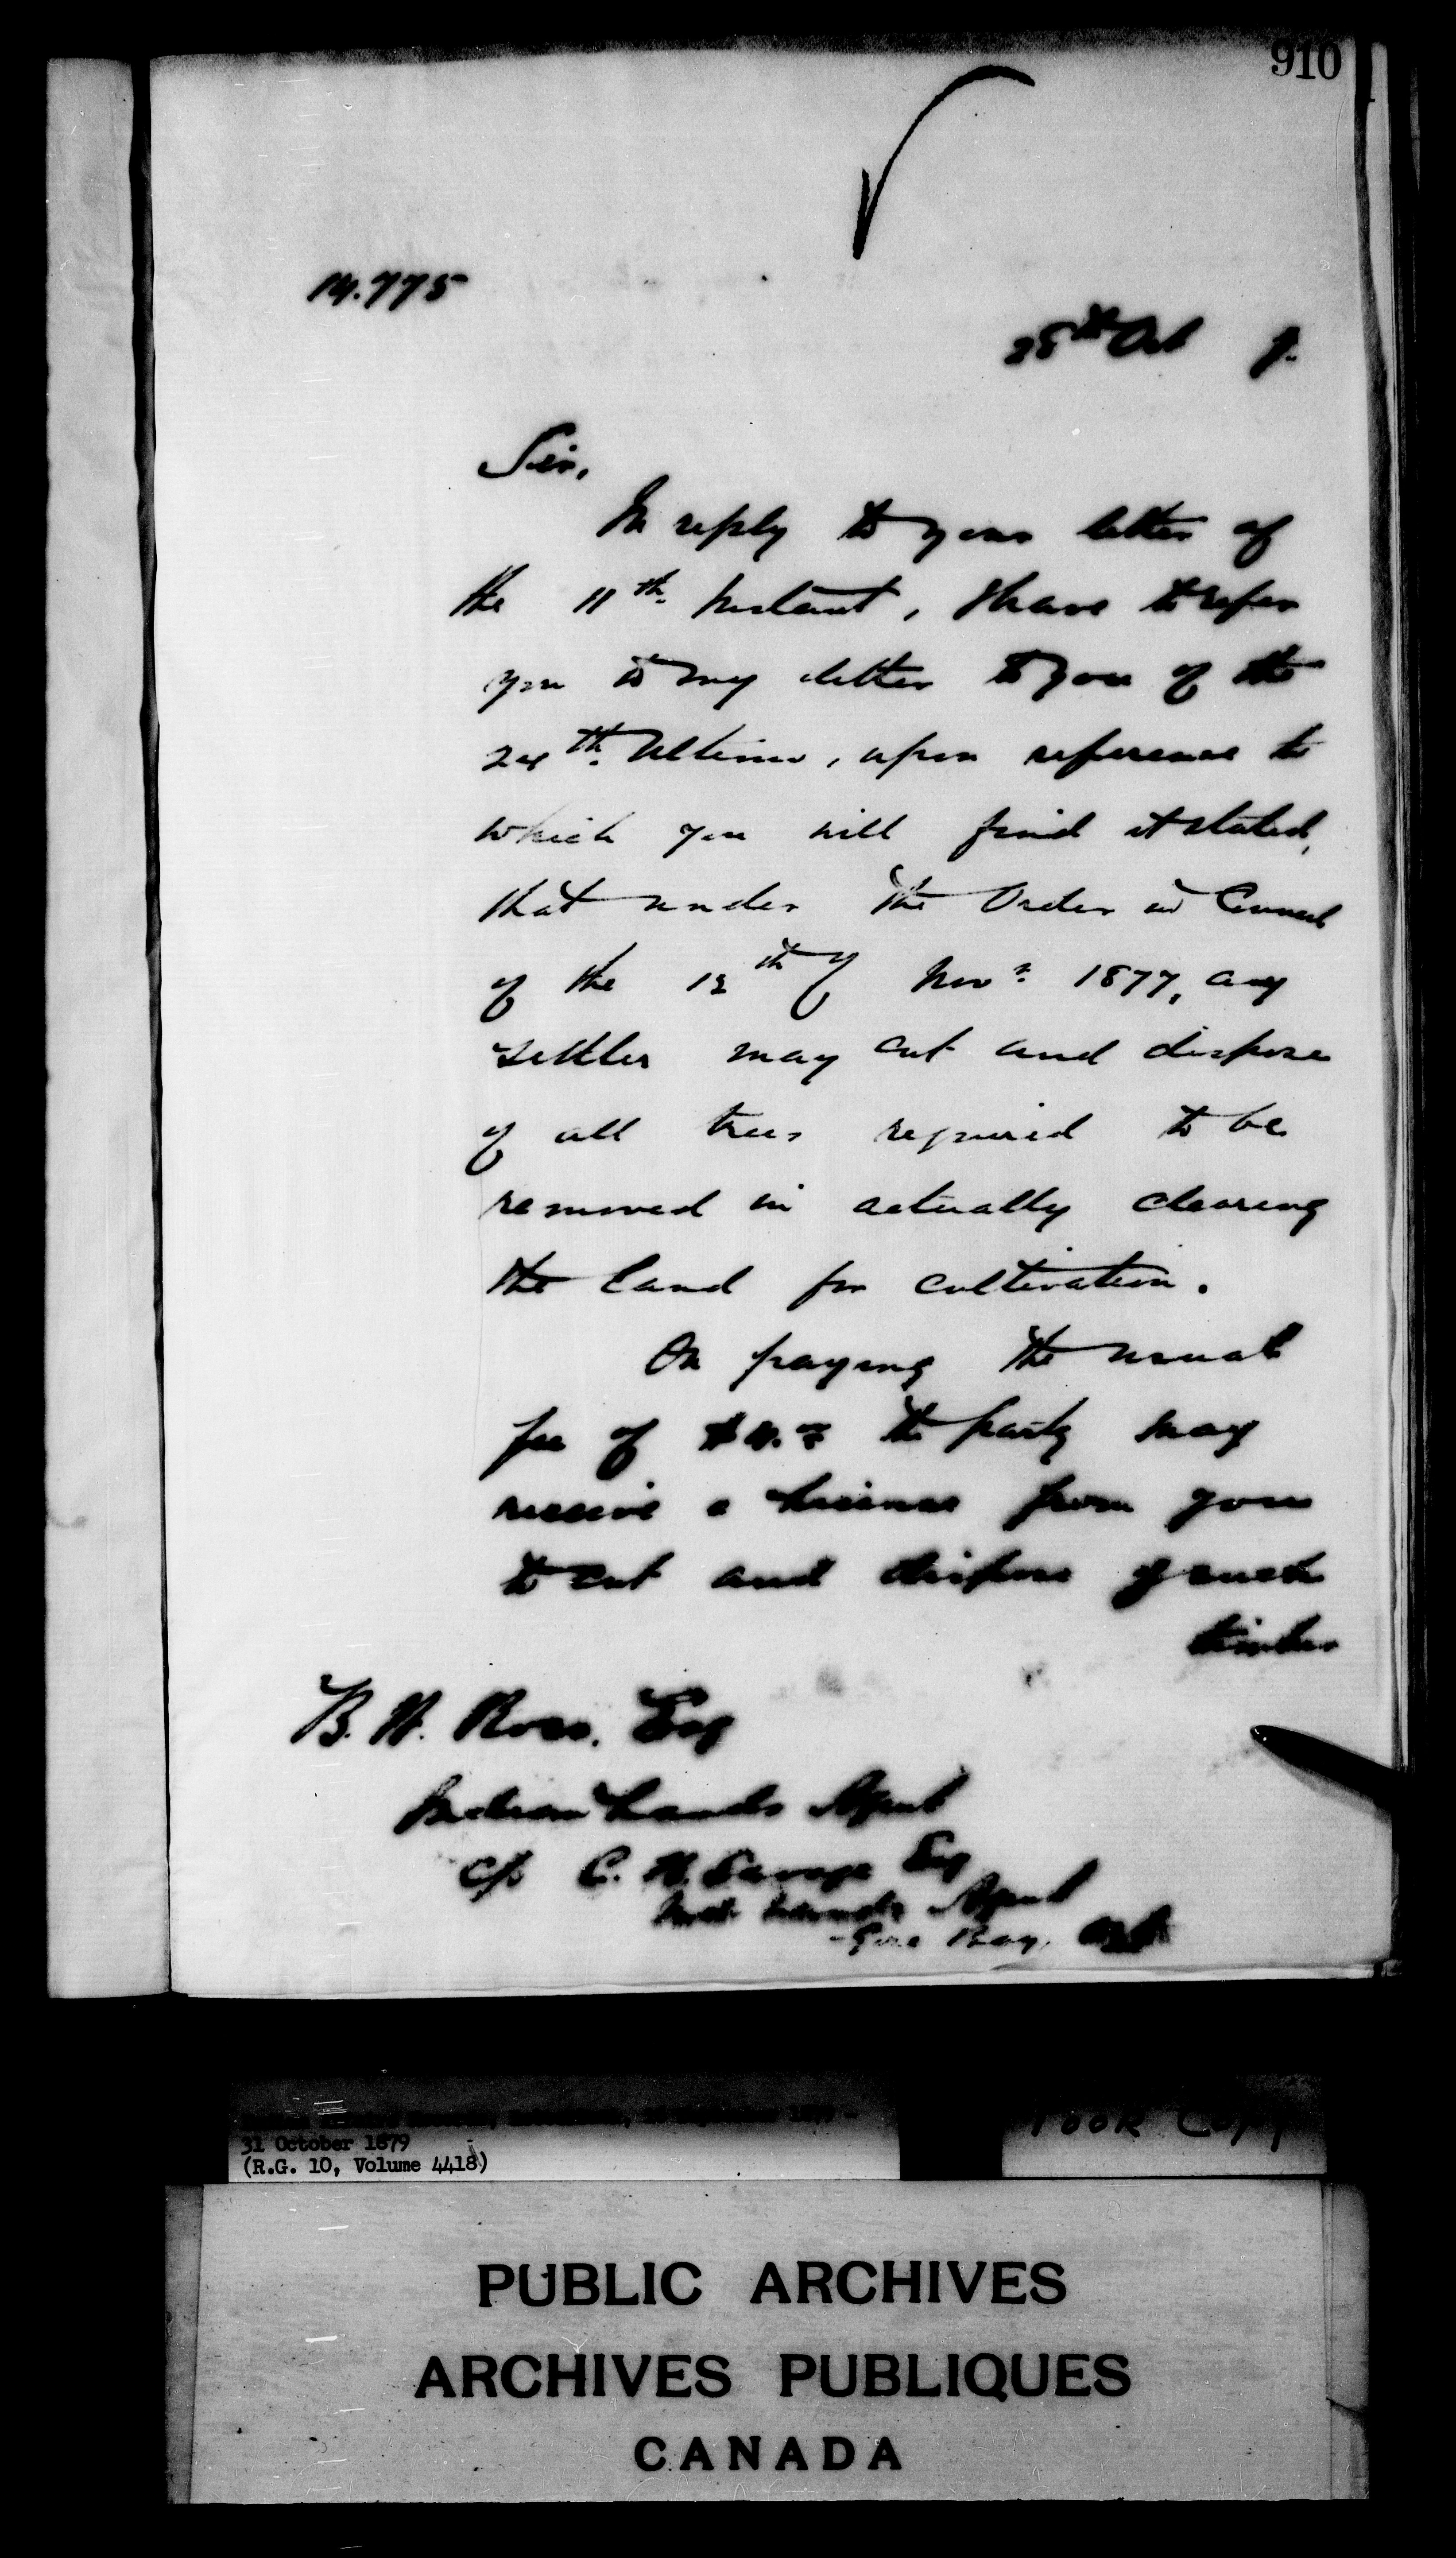 910
14.775
28th Oct 9.
Sir,
In reply to your letter of
the 11th. Instant, I have to refer
you to my letter to you of the
24th. Ultimo, upon reference to
which you will find it stated,
that under the Order in Council
of the 12th of Novr. 1877, any
settler may cut and dispose
of all trees required to be
removed in actually clearing
the land for cultivation.
On paying the usual
fee of $4.00 the party may
receive a license from you
to cut and dispose of such
timber
B. W. Ross, Esq
Indian Lands Agent
c/o C. W. Savage Esq
Agent
Gore Bay, Ont
31 October 1879
(R.G. 10, Volume 4418)
Took Copy
PUBLIC ARCHIVES
ARCHIVES PUBLIQUES
CANADA